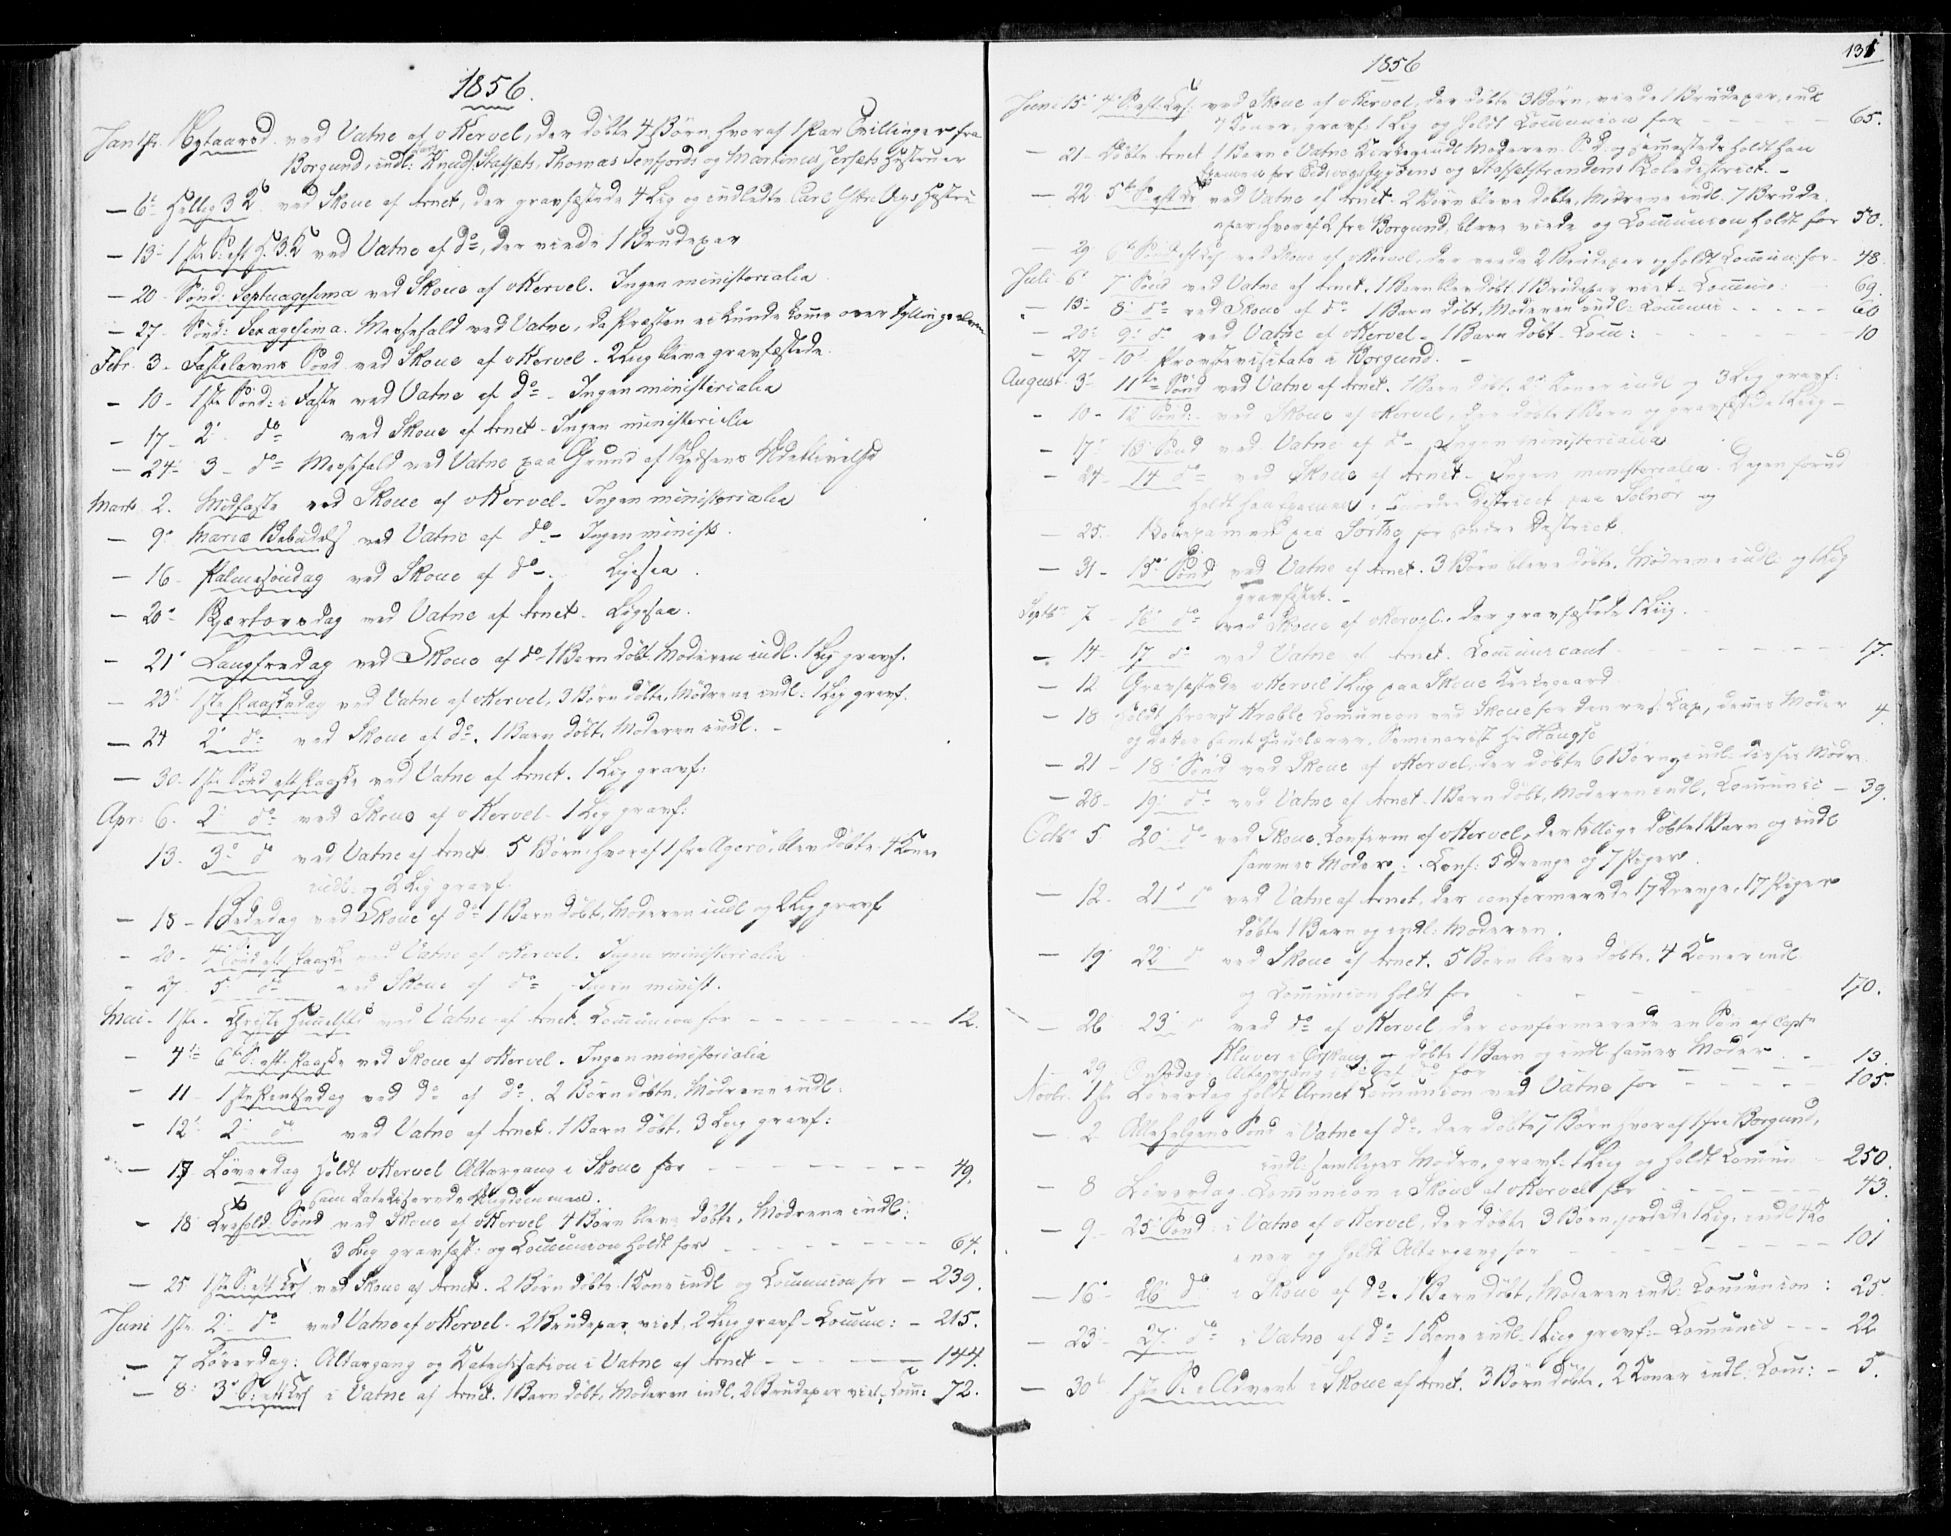 1856.
Jan 1ste Nytaarsd ved Vatne af v Kervel, der døbte 4 Børn, hvoraf 1 Par Tvillinger fra
Borgund, indl: Knuds Stafsets, Thomas Tenfjords og Martinus Jersets Hustruer
— 6te Hellig 3 K ved Skoue af Arnet, der gravfæstede 4 Lig og indledte Carl Ytre Hustru
— 13 1ste S: eft H. 3 K ved Vatne af do, der viede 1 Brudepar
— 20 Sønd: Septuagesima ved Skoue af v Kervel. Ingen ministerialia
— 27 Sønd: Sexagesima. Messefald ved Vatne, da Præsten ei kunde komme over
Febr. 3 Fastelavns Sønd ved Skoue af v Kervel. 2 Lig bleve gravfæstede.
— 10 1ste Sønd: i Faste ved Vatne af do — Ingen ministerialia
— 17 2 do ved Skoue af Arnet — Ingen ministerialia
— 24 3 do Messefald ved Vatne paa Grund af
Marts 2. Midfaste ved Skoue af v Kervel — Ingen ministerialia
— 9 Mariæ Bebudels ved Vatne af do — Ingen minist.
— 16 Palmesøndag ved Skoue af do — Ligesaa.
— 20 Skjærtorsdag ved Vatne af Arnet — Ligesaa.
— 21 Langfredag ved Skoue af do 1 Barn døbt, Moderen indl. 1 Lig gravf.
— 23 1ste Paaskedag ved Vatne af v Kervel, 3 Børn døbte, Mødrene indl: 1 Lig gravf.
— 24 2 do ved Skoue af do. 1 Barn døbt, Moderen indl. —
— 30 1ste Sønd eft Paaske ved Vatne af Arnet. 1 Lig gravf:
Apr: 6. 2 do ved Skoue af v Kervel — 1 Lig gravf:
13. 3 do ved Vatne af Arnet 5 Børn hvoraf 1 fra Agerø, blev døbte 4 Koner
indl: og 2 Lig gravf.
— 18 — 1 Bededag ved Skoue af do 1 Barn døbt, Moderen indl og 2 Lig gravf
— 20 — 4 Sønd eft Paaske ved Vatne af v Kervel. Ingen ministerialia
— 27 5 do ved Skoue af do Ingen minist.
Mai 1ste Christi Himmelfts ved Vatne af Arnet. Communion for — 12.
— 4de 6te S: eft Paaske ved Skoue af v Kervel. Ingen ministerialia
— 11 1ste Pintsedag ved do af do. 2 Børn døbte, Mødrene indl:
— 12 2 do ved Vatne af Arnet. 1 Barn døbt. 3 Lig gravf:
— 17 Løverdag holdt v Kervel Altargang i Skoue for — 49.
samt Ungdommen.
— 18 Trefold: Sønd ved Skoue af v Kervel 4 Børn bleve døbte, Mødrene indl:
3 Lig gravfæst: og Communion holdt for — 64.
— 25 1ste S: eft Tref ved Skoue af Arnet. 2 Børn døbte. 1 Kone indl og Communion for — 239.
Juni 1ste 2 do ved Vatne af v Kervel — 2 Brudepar viet, 2 Lig gravf — Commun: — 215.
— 7 Løverdag: Altargang og Katechisation i Vatne af Arnet — 144.
— 8 3 S: eft Tref i Vatne af Arnet. 1 Barn døbt, Moderen indl, 2 Brudepar viet, Com: 72.
1856
131
Juni 15 4 S: eft Tref. ved Skoue af v Kervel, der døbte 3 Børn, viede 1 Brudepar, indl
7 Koner, gravf: 1 Lig og holdt Communion for — 65.
— 21 Døbte Arnet 1 Barn i Vatne Kirke, indl Moderen S. D. og sammesteds holdt han
Examen for Eidsvogs og Stafsetstrandens Skoledistrict. —
— 22 5te S: eft Tr ved Vatne af Arnet 2 Børn bleve døbte, Mødrene indl. 7 Brude
par, hvoraf 2 fra Borgund, bleve viede og Communion holdt for 50.
— 29 6te Sønd: eft Tref ved Skoue af v Kervel, der viede 2 Brudepar og holdt Commun: for — 48
Juli 6 7 Sønd ved Vatne af Arnet. 1 Barn blev døbt, 1 Brudepar viet — Commun: — 69.
— 13 8 do ved Skoue af do 1 Barn døbt, Moderen indl: Commun — 60
— 20 9 do ved Vatne af v Kervel — 1 Barn døbt — Com: — 10
— 27 10 Provstevisitats i Borgund. —
August 3 11te Sønd ved Vatne af Arnet. 1 Barn døbt, 2 Koner indl og 3 Lig gravf:
— 10 12 Sønd: ved Skoue af v Kervel, der døbte 1 Barn og gravfæstede 1 Lig —
— 17 13 Sønd ved Vatne af do — Ingen ministerialia
— 24 14 do ved Skoue af Arnet — Ingen ministerialia. Dagen forud
holdt han Examen i Nordre District paa Solnør og
— 25. Skoleexamen paa for søndre District
— 31 15 Sønd ved Vatne af Arnet. 3 Børn bleve døbte, Mødrene indl: og 1 Lig
gravfæstet. —
Septbr 7 16 do ved Skoue af v Kervel, der gravfæstede 1 Lig. —
— 14 17 do ved Vatne af Arnet. Communicant — 17.
— 12 Gravfæstede v Kervel 1 Lig paa Skoue Kirkegaard
— 18 Holdt Provst Krabbe Communion ved Skoue for den res: Cap, dennes Moder 4.
og Datter samt Huuslærer, Seminarist Hr Haugsø
— 21 18 Sønd ved Skoue af v Kervel, der døbte 6 Børn, indl: disses Mødre.
— 28 19 do ved Vatne af Arnet. 1 Barn døbt, Moderen indl, Communic — 39.
Octbr 5 20 do ved Skoue, Confirm af v Kervel, der tillige døbte 1 Barn og indl
sammes Moder. Conf: 5 Drenge og 7 Piger.
— 12. 21 do ved Vatne af Arnet, der confirmerede 17 Drenge, 17 Piger
døbte 1 Barn og indl: Moderen.
— 19 22 do ved Skoue af Arnet. 5 Børn bleve døbte, 4 Koner indl.
og Communion holdt for — 170.
— 26 23 do ved do af v Kervel, der confirmerede en Søn af Captn
Kluver i Ørskoug, og døbte 1 Barn og indl sammes Moder. —
29. Onsdag, Altargang i af do for — 13.
Novbr. 1ste Løverdag holdt Arnet Communion ved Vatne for — 105.
— 2 Allehelgens Sønd i Vatne af do, der døbte 7 Børn hvoraf 1 fra Borgund,
indl: samtliges Mødre, gravf: 1 Lig og holdt Commun — 250.
— 8 Løverdag Communion i Skoue af v Kervel for — 43.
— 9 25 Sønd: i Vatne af v Kervel, der døbte 3 Børn, jordede 1 Lig, indl 4 Ko
ner og holdt Altargang for — 101
— 16 26 do i Skoue af do. 1 Barn døbt, Moderen indl: Communion: 25.
— 23 27 do i Vatne af do 1 Kone indl: 1 Lig gravf: — Communic — 22
— 30 1ste S: i Advent i Skoue af Arnet. 3 Børn døbte. 2 Koner indl. Com: — 5.